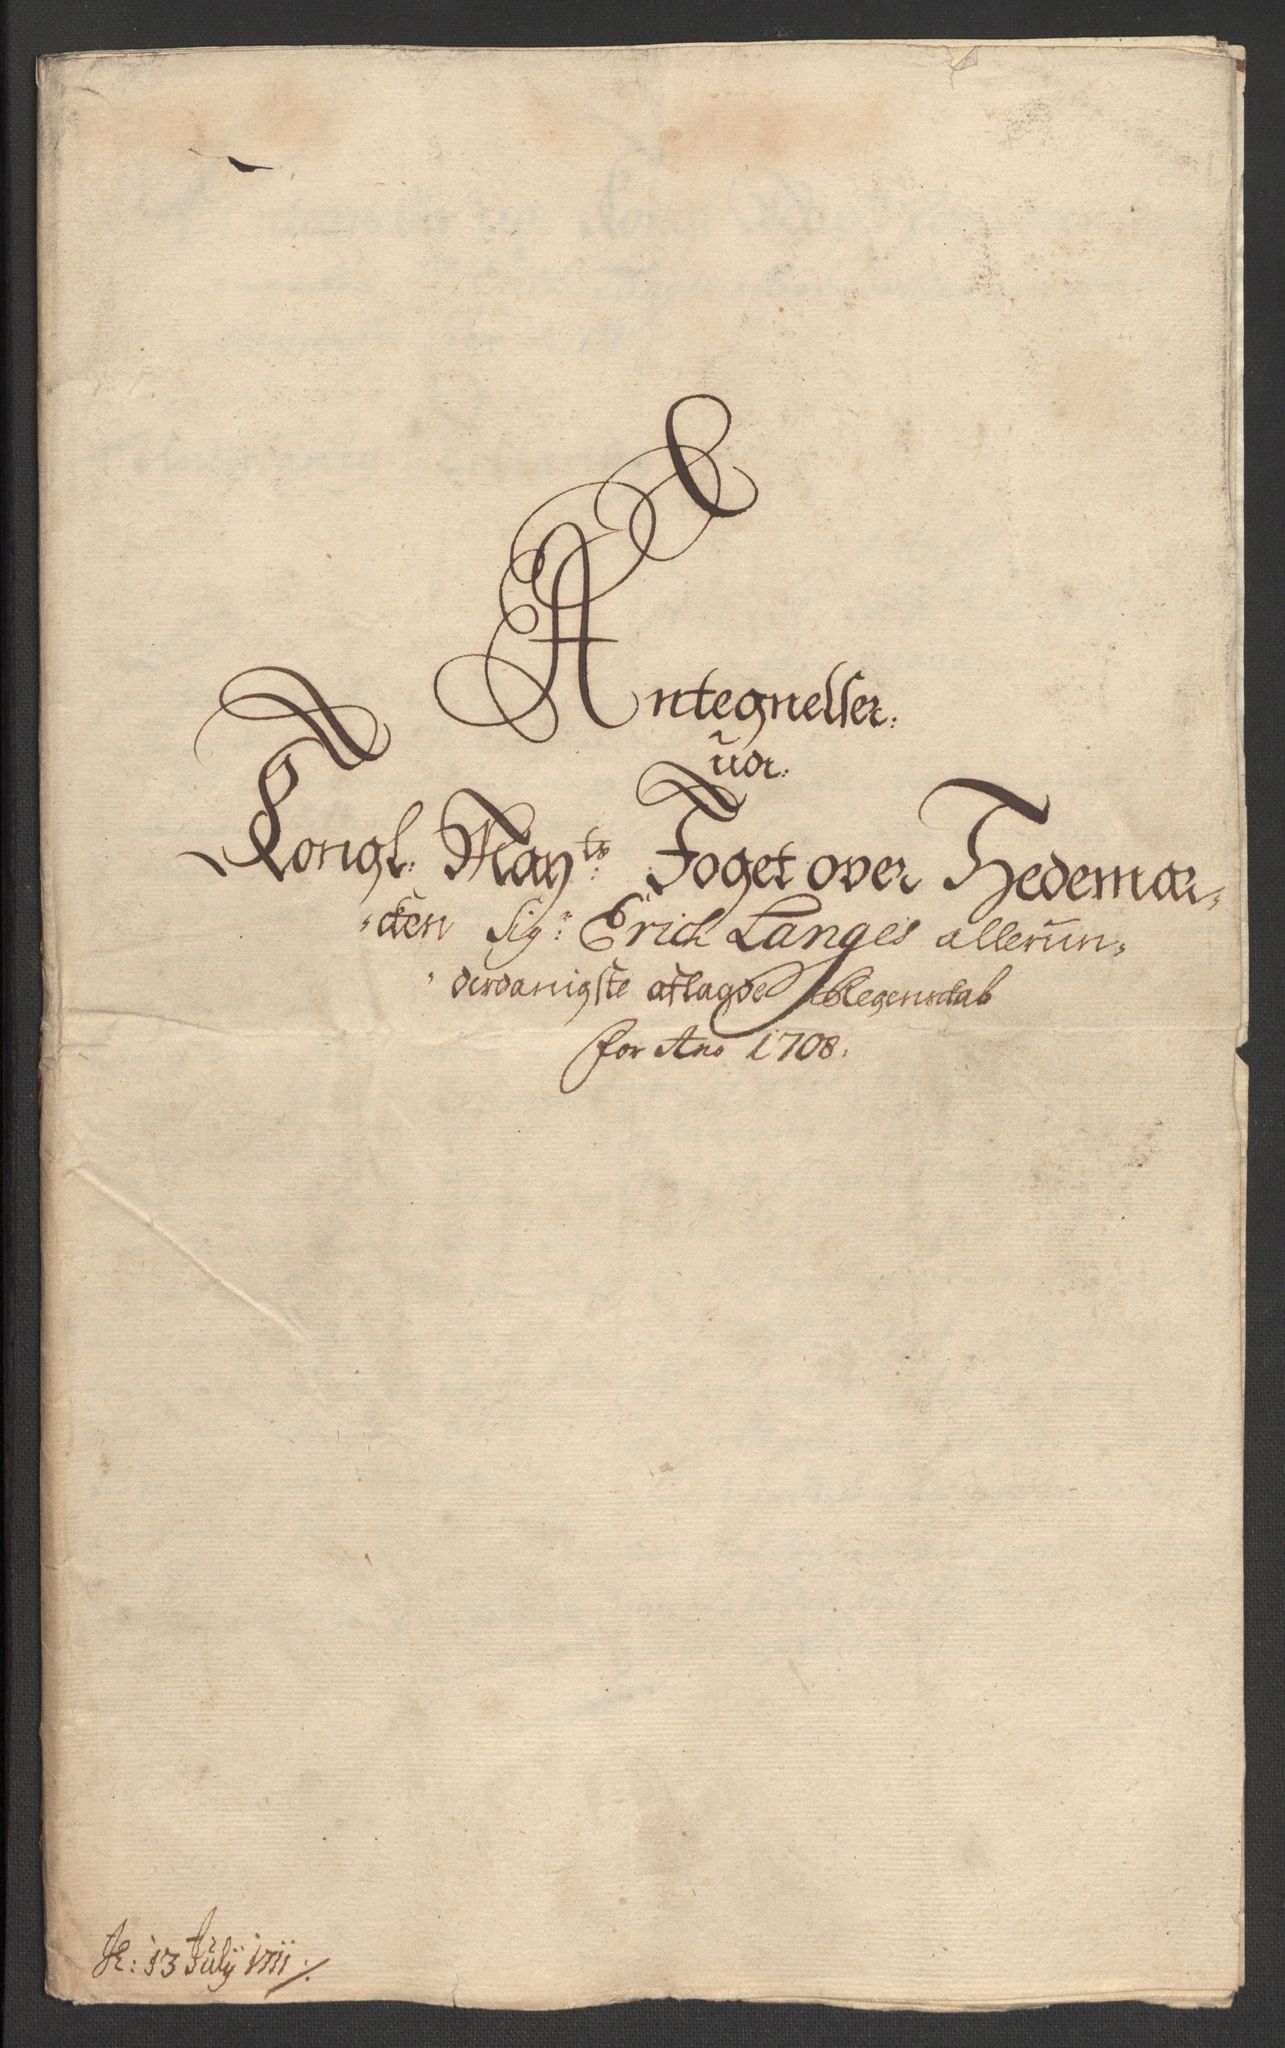 Antegnelser.
ved.
Kongl. Mayts. Foget over Hedemar-
-cken Sigr. Erich Langes allerun-
-derdanigste aflagde Regenskab
for Ano 1708.
13 July 1711